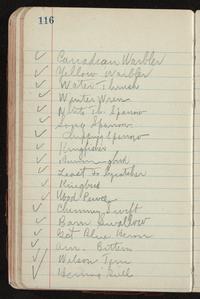 116
✓ Canadian Warbler
✓ Yellow Warbler
✓ Water Thrush
✓ Winter Wren
✓ White Th. Sparrow
✓ Song Sparrow
✓ Chipping Sparrow
✓ Kingfisher
✓ Hummingbird
✓ Least Flycatcher
✓ Kingbird
✓ Wood Pewee
✓ Chimney Swift
✓ Barn Swallow
✓ Gt Blue Heron
✓ Am. Bittern
✓ Wilson Tern
✓ Herring Gull